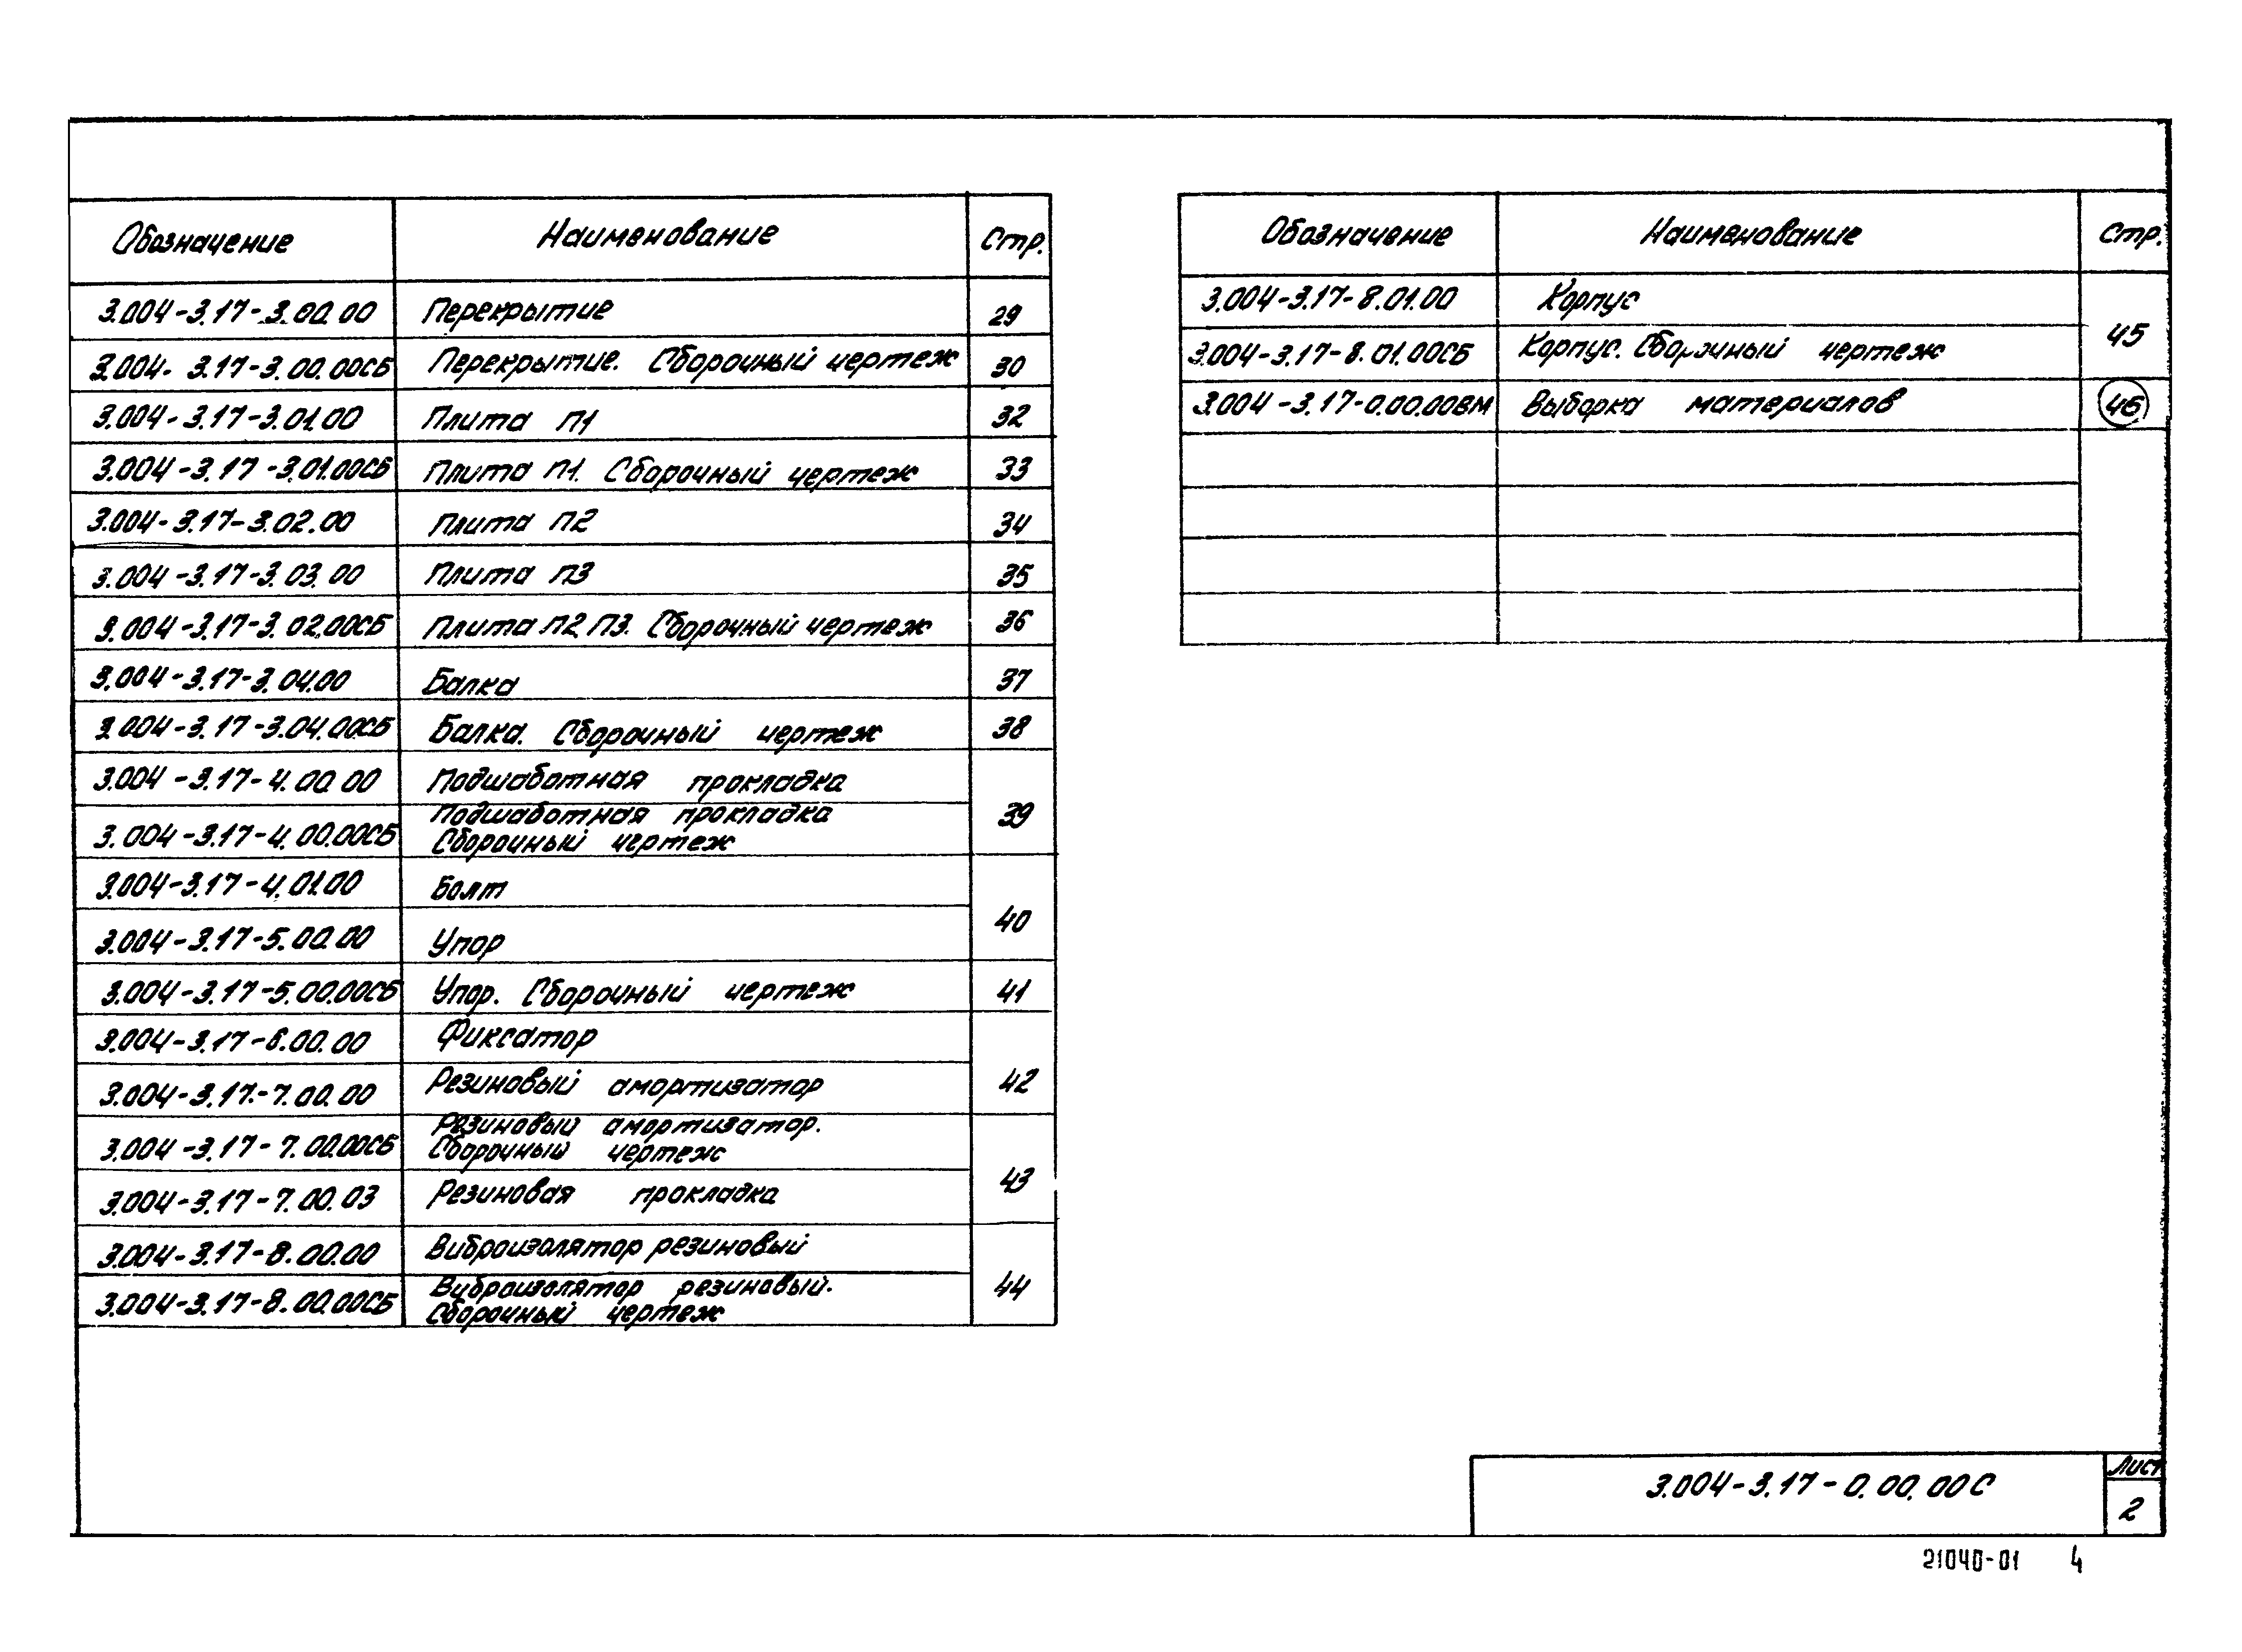 Обозначение Наименование Стр.
3.004-3.17-3.00.00 Перекрытие 29
3.004-3.17-3.00.00СБ Перекрытие. Сборочный чертеж 30
3.004-3.17-3.01.00 Плита П1 32
3.004-3.17-3.01.00СБ Плита П1. Сборочный чертеж 33
3.004-3.17-3.02.00 Плита П2 34
3.004-3.17-3.03.00 Плита П3 35
3.004-3.17-3.02.00СБ Плита П2, П3. Сборочный чертеж 36
3.004-3.17-3.04.00 Балка 37
3.004-3.17-3.04.00СБ Балка. Сборочный чертеж 38
3.004-3.17-4.00.00 Подшаботная прокладка
3.004-3.17-4.00.00СБ Подшаботная прокладка
Сборочный чертеж
39
3.004-3.17-4.01.00 Болт
3.004-3.17-5.00.00 Упор
40
3.004-3.17-5.00.00СБ Упор. Сборочный чертеж 41
3.004-3.17-6.00.00 Фиксатор
3.004-3.17-7.00.00 Резиновый амортизатор
42
3.004-3.17-7.00.00СБ Резиновый амортизатор.
Сборочный чертеж
3.004-3.17-7.00.03 Резиновая прокладка
43
3.004-3.17-8.00.00 Виброизолятор резиновый
3.004-3.17-8.00.00СБ Виброизолятор резиновый.
Сборочный чертеж
44
Обозначение Наименование Стр.
3.004-3.17-8.01.00 Корпус
3.004-3.17-8.01.00СБ Корпус. Сборочный чертеж
45
3.004-3.17-0.00.00ВМ Выборка материалов 46
3.004-3.17-0.00.00С
Лист
2
21040-01 4